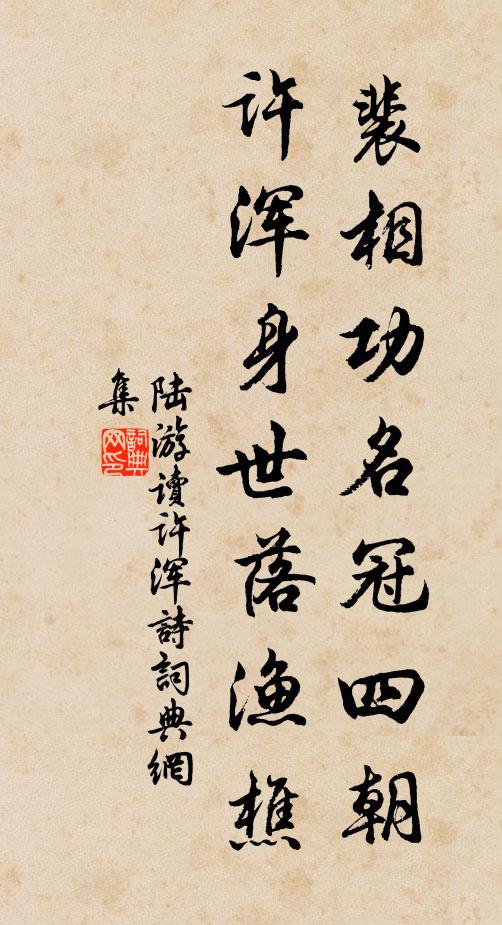 裴相功名冠四朝
许浑身世落渔樵
陆游读许浑詩詞典網
集
詞典网印